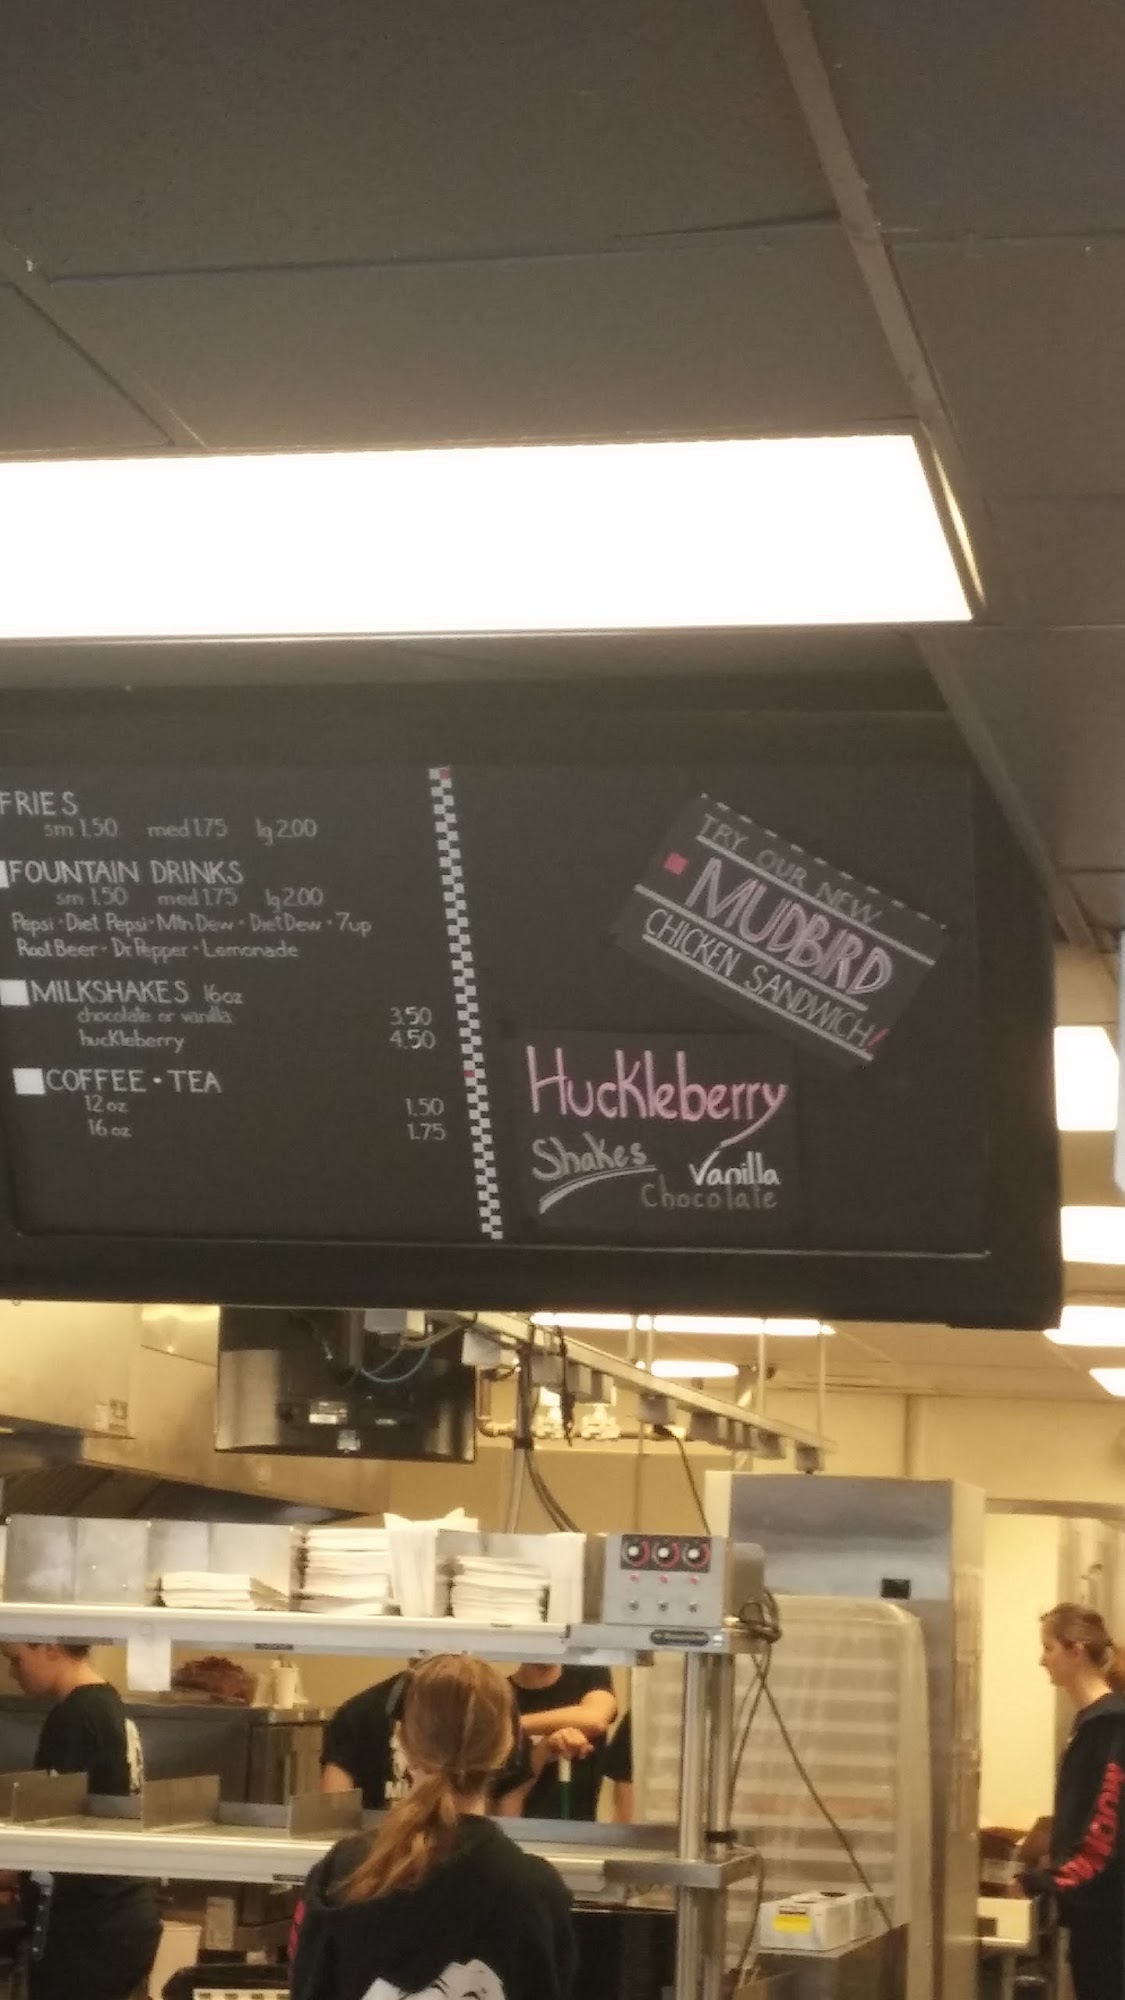 FRIES
sm 1.50 med 1.75 lg 2.00
FOUNTAIN DRINKS
sm 1.50 med 1.75 lg 2.00
Pepsi • Diet Pepsi • Mtn Dew • Diet Dew • 7up
Root Beer • Dr. Pepper • Lemonade
MILKSHAKES 16oz
chocolate or vanilla 3.50
huckleberry 4.50
COFFEE • TEA
12 oz 1.50
16 oz 1.75
TRY OUR NEW
MUDBIRD
CHICKEN SANDWICH!
Huckleberry
Shakes
Vanilla
Chocolate